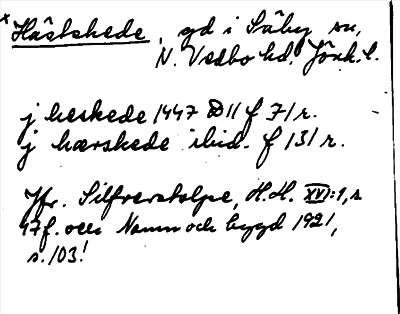 * Hästskede, gd i Säby sn,
N. Vedbo hd. Jönk. l.
j heskede 1447 D 11 f 71 r.
j hærskede ibid. f 131 r.
Jfr. Silfverstolpe, H.H. XVI:1, s.
47 f. och Namn och bygd 1921,
s. 103!